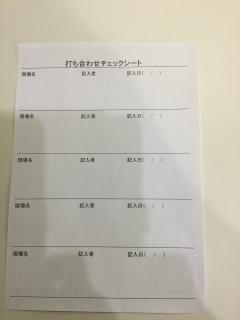 打ち合わせチェックシート
現場名 記入者 記入日( / )
現場名 記入者 記入日( / )
現場名 記入者 記入日( / )
現場名 記入者 記入日( / )
現場名 記入者 記入日( / )